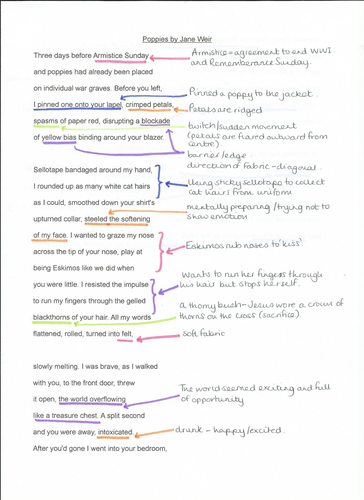 Poppies by Jane Weir
Three days before Armistice Sunday
Armistice = agreement to end WWI
and Rememberance Sunday.
and poppies had already been placed
on individual war graves. Before you left,
I pinned one onto your lapel, crimped petals,
Pinned a poppy to the jacket.
Petals are ridged
spasms of paper red, disrupting a blockade
twitch/sudden movement
(petals are flared outward from
centre).
of yellow bias binding around your blazer.
barrier/edge
direction of fabric - diagonal.
Sellotape bandaged around my hand,
I rounded up as many white cat hairs
Using sticky sellotape to collect
cat hairs from uniform
as I could, smoothed down your shirt's
mentally preparing / trying not to
show emotion
upturned collar, steeled the softening
of my face. I wanted to graze my nose
across the tip of your nose, play at
Eskimos rub noses to 'kiss'
being Eskimos like we did when
you were little. I resisted the impulse
Wants to run her fingers through
his hair but stops herself.
to run my fingers through the gelled
blackthorns of your hair. All my words
a thorny bush - Jesus wore a crown of
thorns on the cross (sacrifice).
flattened, rolled, turned into felt,
soft fabric
slowly melting. I was brave, as I walked
with you, to the front door, threw
it open, the world overflowing
The world seemed exciting and full
of opportunity
like a treasure chest. A split second
and you were away, intoxicated.
drunk - happy/excited.
After you'd gone I went into your bedroom,